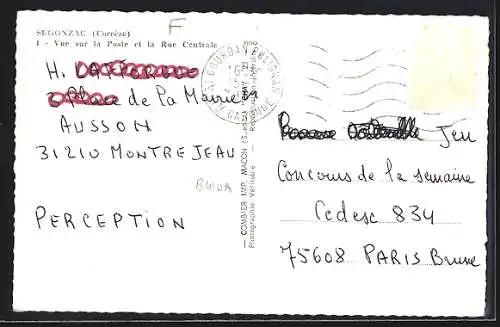 SEGONZAC (Corrèze)
F
1 - Vue sur la Poste et la Rue Centrale
H.
Place de La Mairie
AUSSON
31210 MONTREJEAU
BWDA
PERCEPTION
COMBIER IMP. MACON
Photographie Véritable
Jeu
Concours de la semaine
Cedesc 834
75608 PARIS Brune